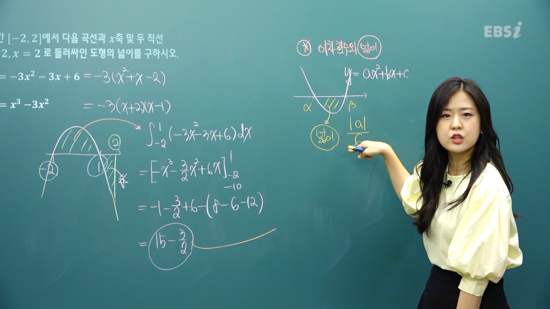 [-2, 2]에서 다음 곡선과 x축 및 두 직선
2, x = 2 로 둘러싸인 도형의 넓이를 구하시오.
= -3x² - 3x + 6 = -3(x²+x-2)
= x³ - 3x² = -3(x+2)(x-1)
-2 1 2
∫₋₂¹ (-3x²-3x+6)dx
= [-x³ - 3/2 x² + 6x]₋₂¹
-10
= -1 - 3/2 + 6 - (8 - 6 - 12)
= 15 - 3/2
※ 이차함수의 넓이
y = ax²+bx+c
α β
넓이 |a|/6
EBSi